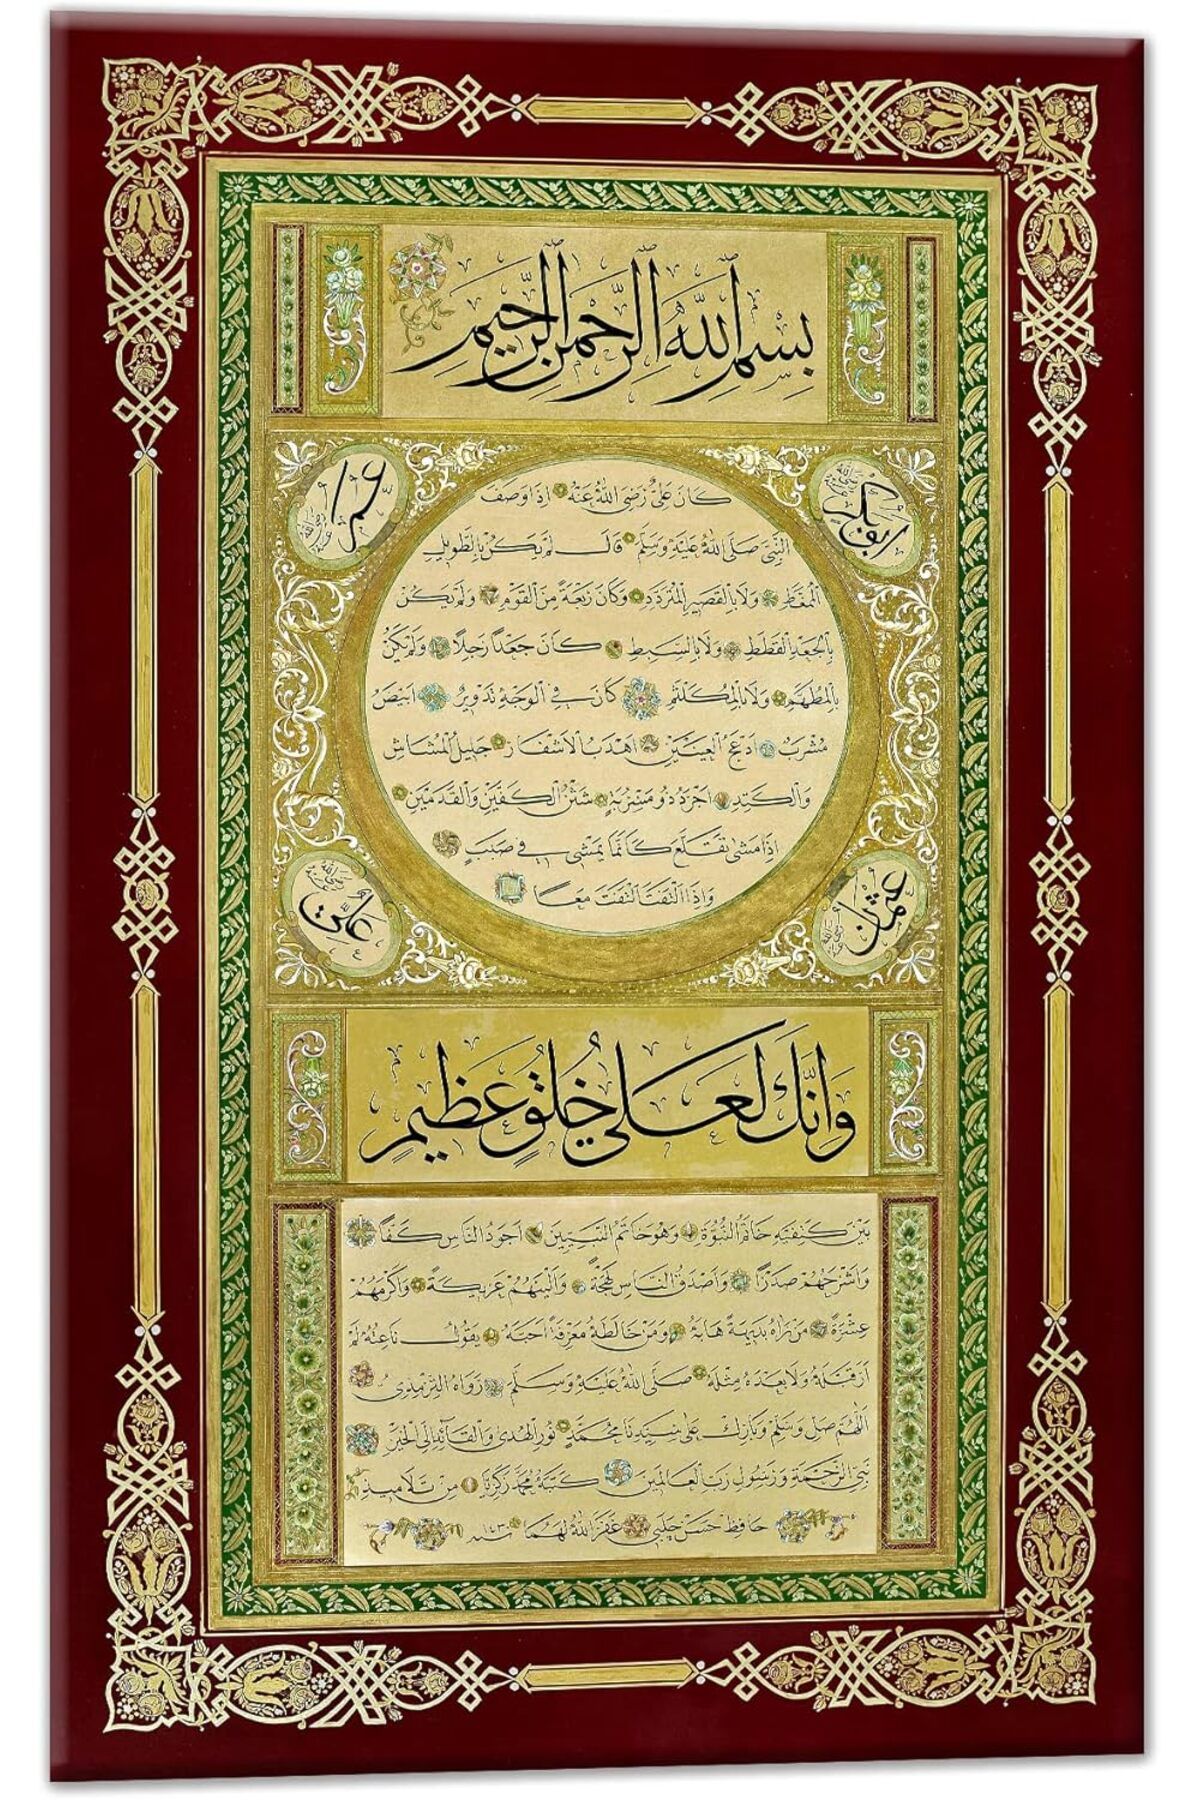 بِسْمِ اللهِ الرَّحْمٰنِ الرَّحِيمِ
ابوبكر رضي الله عنه
عمر رضي الله عنه
كَانَ عَلِيٌّ رَضِيَ اللهُ عَنْهُ اِذَا وَصَفَ
النَّبِيَّ صَلَّى اللهُ عَلَيْهِ وَسَلَّمَ قَالَ لَمْ يَكُنْ بِالطَّوِيلِ
الْمُمَغَّطِ وَلَا بِالْقَصِيرِ الْمُتَرَدِّدِ وَكَانَ رَبْعَةً مِنَ الْقَوْمِ وَلَمْ يَكُنْ
بِالْجَعْدِ الْقَطَطِ وَلَا بِالسَّبِطِ كَانَ جَعْداً رَجِلاً وَلَمْ يَكُنْ
بِالْمُطَهَّمِ وَلَا بِالْمُكَلْثَمِ كَانَ فِي الْوَجْهِ تَدْوِيرٌ اَبْيَضُ
مُشْرَبٌ اَدْعَجُ الْعَيْنَيْنِ اَهْدَبُ الْاَشْفَارِ جَلِيلُ الْمُشَاشِ
وَالْكَتَدِ اَجْرَدُ ذُو مَسْرُبَةٍ شَثْنُ الْكَفَّيْنِ وَالْقَدَمَيْنِ
اِذَا مَشٰى تَقَلَّعَ كَاَنَّمَا يَمْشِي فِي صَبَبٍ
وَاِذَا الْتَفَتَ الْتَفَتَ مَعاً
عثمن رضي الله عنه
علي رضي الله عنه
وَاِنَّكَ لَعَلٰى خُلُقٍ عَظِيمٍ
بَيْنَ كَتِفَيْهِ خَاتَمُ النُّبُوَّةِ وَهُوَ خَاتَمُ النَّبِيِّينَ اَجْوَدُ النَّاسِ كَفّاً
وَاَشْرَحُهُمْ صَدْراً وَاَصْدَقُ النَّاسِ لَهْجَةً وَاَلْيَنُهُمْ عَرِيكَةً وَاَكْرَمُهُمْ
عِشْرَةً مَنْ رَاٰهُ بَدِيهَةً هَابَهُ وَمَنْ خَالَطَهُ مَعْرِفَةً اَحَبَّهُ يَقُولُ نَاعِتُهُ لَمْ
اَرَ قَبْلَهُ وَلَا بَعْدَهُ مِثْلَهُ صَلَّى اللهُ عَلَيْهِ وَسَلَّمَ رَوَاهُ التِّرْمِذِيُّ
اَللّٰهُمَّ صَلِّ وَسَلِّمْ وَبَارِكْ عَلٰى سَيِّدِنَا مُحَمَّدٍ نُورِ الْهُدٰى وَالْقَائِدِ اِلَى الْخَيْرِ
نَبِيِّ الرَّحْمَةِ وَرَسُولِ رَبِّ الْعَالَمِينَ كَتَبَهُ مُحَمَّد زَكَرِيَّا مِنْ تَلَامِيذِ
حَافِظْ حَسَنْ چَلَبِي غَفَرَ اللهُ لَهُمَا